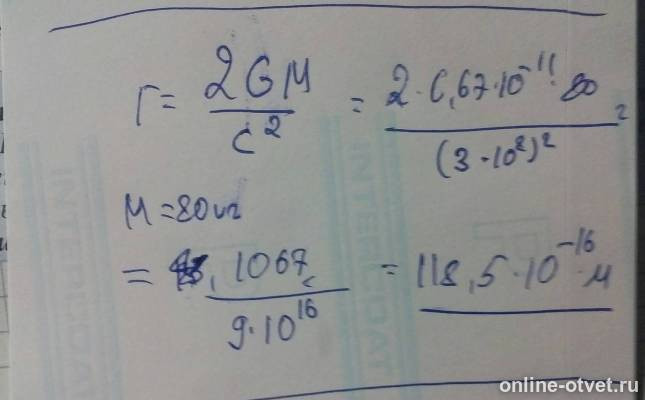 r = 2GM / c² = 2·6,67·10⁻¹¹·80 / (3·10⁸)² =
M = 80 кг
= 1067 / 9·10¹⁶ = 118,5·10⁻¹⁶ м
INTERDDAT
online-otvet.ru